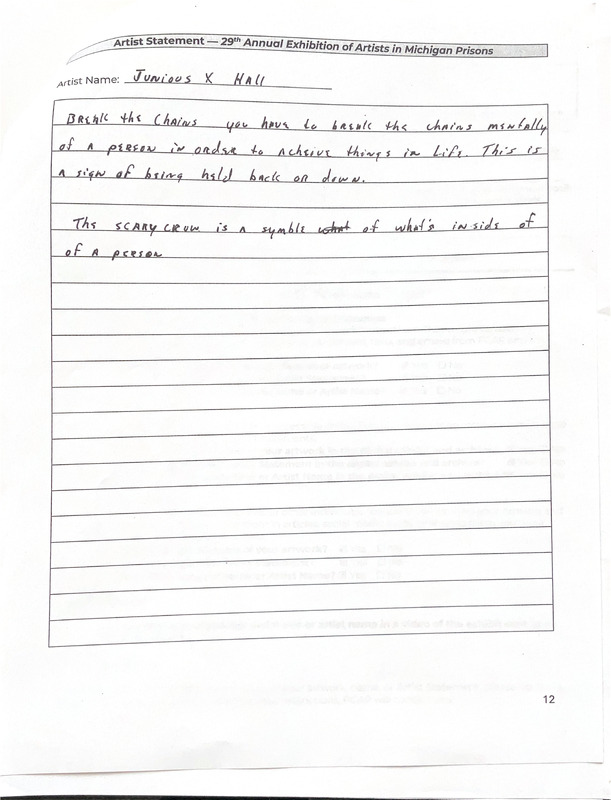 Artist Statement — 29th Annual Exhibition of Artists in Michigan Prisons
Artist Name: Junious X Hall
Break the Chains you have to break the chains mentally
of a person in order to Acheive things in Life. This is
a sign of being held back or down.
The SCARY CROW is a symble what of what's inside of
of A person
12